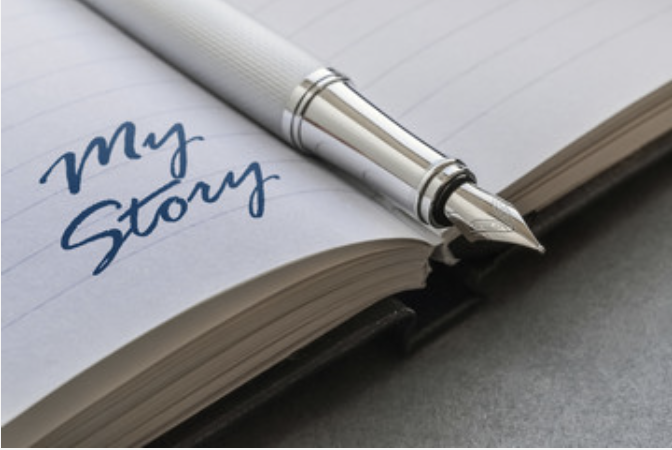 My
Story